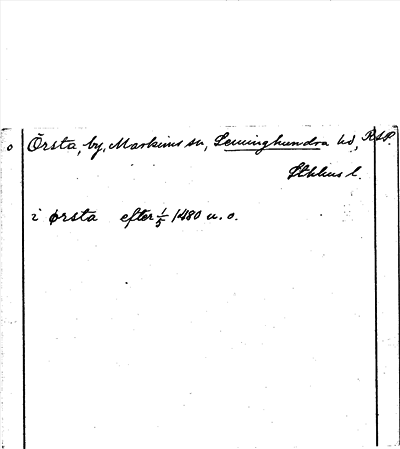 o Örsta, by, Markims sn, Seminghundra hd, RSP.
Sthlms l.
i ørsta efter 1/5 1480 u. o.